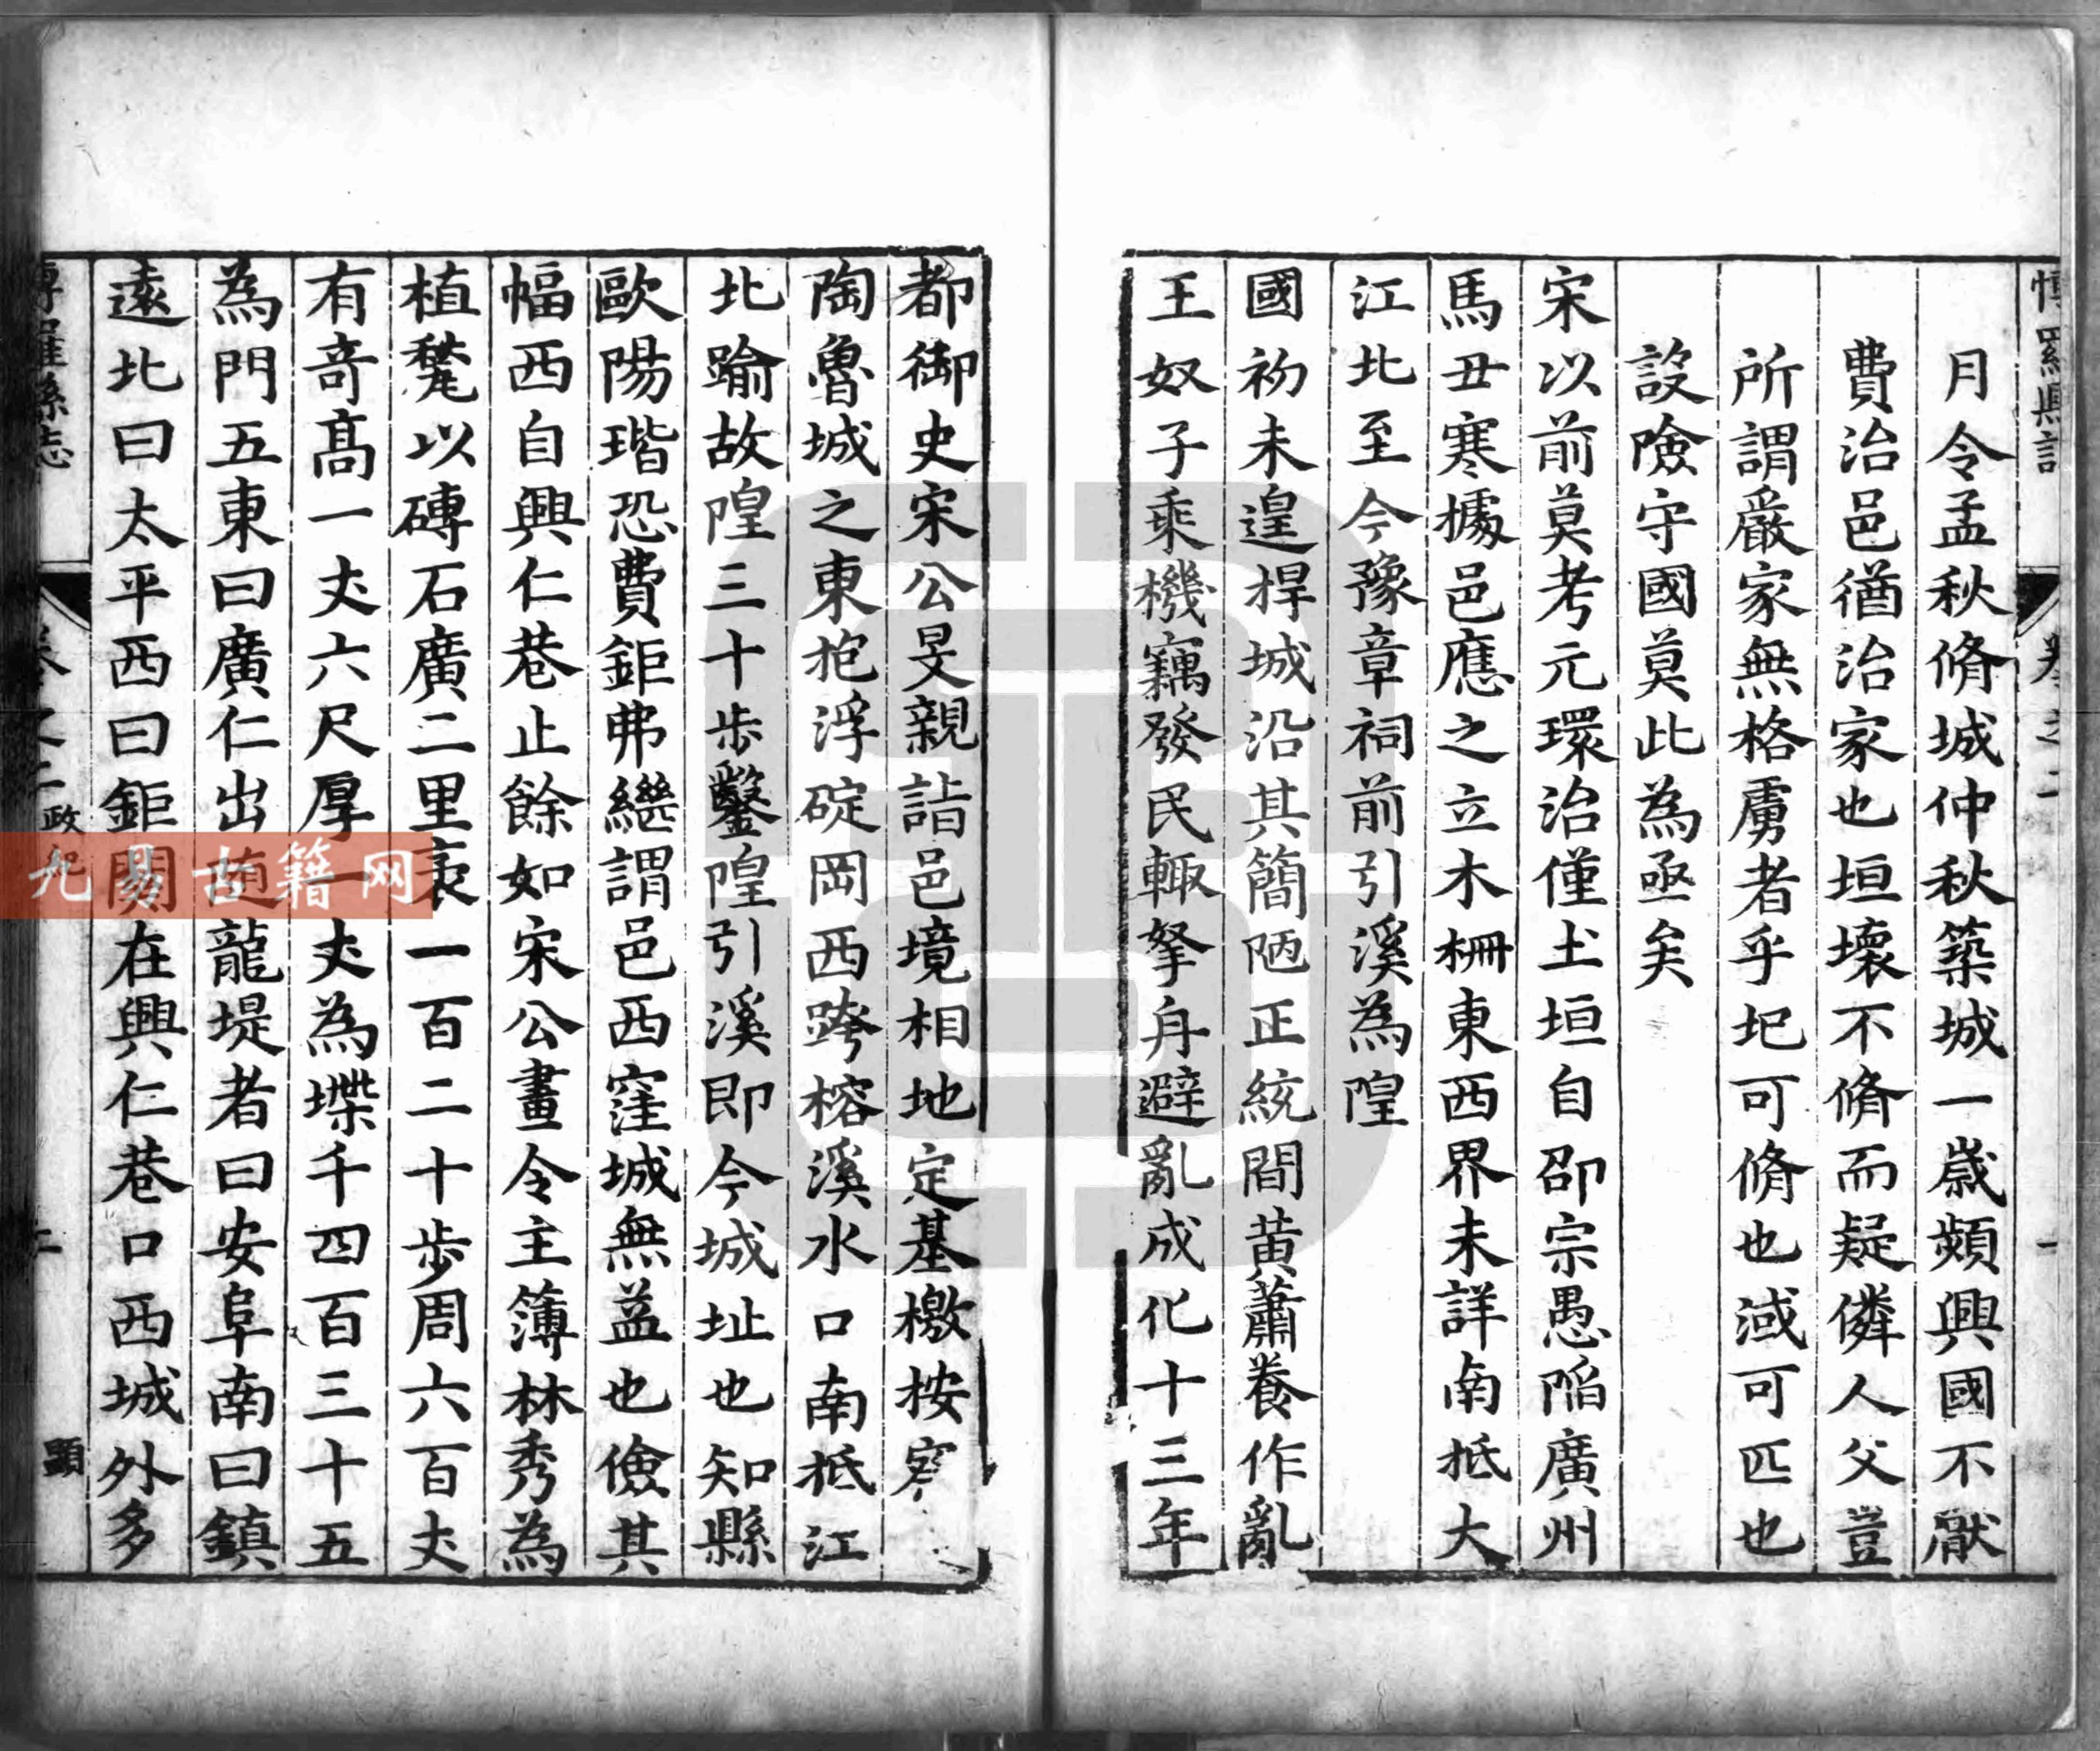 月令孟秋脩城仲秋築城一歳頻興國不厭
費治邑猶治家也垣壞不脩而疑鄰人父豈
所謂嚴家無格虜者乎圯可脩也淢可匹也
設險守國莫此為亟矣
宋以前莫考元環治僅土垣自邵宗愚陷廣州
馬丑寒據邑應之立木柵東西界未詳南抵大
江北至今豫章祠前引溪為隍
國初未遑捍城沿其簡陋正統間黃蕭養作亂
王奴子乘機竊發民輙拏舟避亂成化十三年
都御史宋公旻親詣邑境相地定基檄按察
陶魯城之東抱浮碇岡西跨榕溪水口南抵江
北踰故隍三十步鑿隍引溪即今城址也知縣
歐陽瑎恐費鉅弗繼謂邑西窪城無益也儉其
幅西自興仁巷止餘如宋公畫令主簿林秀為
植甃以磚石廣二里袤一百二十步周六百丈
有竒高一丈六尺厚一丈為堞千四百三十五
為門五東曰廣仁出随龍堤者曰安阜南曰鎮
遠北曰太平西曰鉅閱在興仁巷口西城外多
博羅縣志
卷之二
政
二
顕
九易古籍网